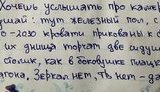 Хочешь услышать про каме
ушай: тут железный пол,
0-2030 кровати прикованы к с
их днища торчат две
столик, как в боковушке плацк
агона, Зеркал нет, Тв нет - да